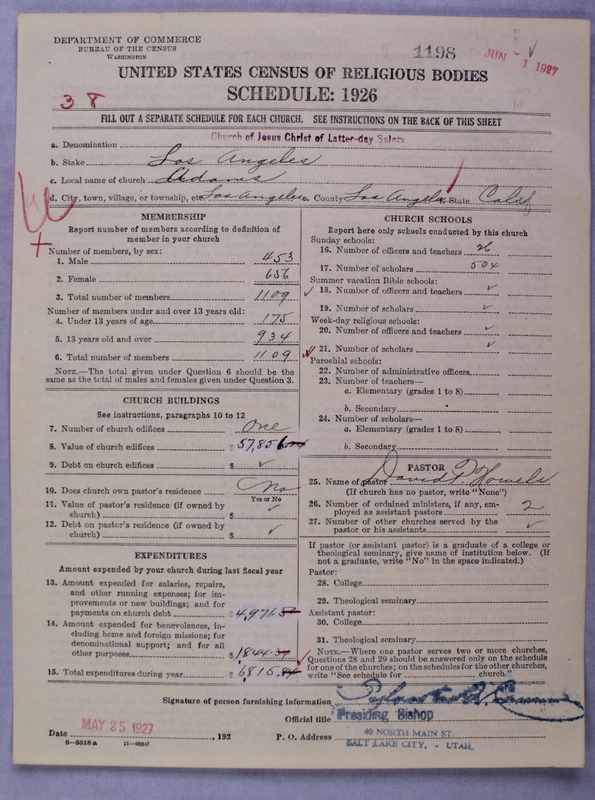 DEPARTMENT OF COMMERCE
BUREAU OF THE CENSUS
WASHINGTON
1198
JUN - 1 1927
UNITED STATES CENSUS OF RELIGIOUS BODIES
SCHEDULE: 1926
38
FILL OUT A SEPARATE SCHEDULE FOR EACH CHURCH. SEE INSTRUCTIONS ON THE BACK OF THIS SHEET
a. Denomination Church of Jesus Christ of Latter-day Saints
b. Stake Los Angeles
c. Local name of church Adams
d. City, town, village, or township, etc. Los Angeles e. County Los Angeles State Calif
MEMBERSHIP
Report number of members according to definition of
member in your church
Number of members, by sex:
1. Male 453
2. Female 656
3. Total number of members 1109
Number of members under and over 13 years old:
4. Under 13 years of age 175
5. 13 years old and over 934
6. Total number of members 1109
NOTE.—The total given under Question 6 should be
same as the total of males and females given under Question 3.
CHURCH BUILDINGS
See instructions, paragraphs 10 to 12
7. Number of church edifices One
8. Value of church edifices $ 57,856
9. Debt on church edifices $ ✓
10. Does church own pastor's residence No
Yes or No
11. Value of pastor's residence (if owned by
church) $ ✓
12. Debt on pastor's residence (if owned by
church) $ ✓
EXPENDITURES
Amount expended by your church during last fiscal year
13. Amount expended for salaries, repairs,
and other running expenses; for im-
provements or new buildings; and for
payments on church debt $ 4,971.
14. Amount expended for benevolences, in-
cluding home and foreign missions; for
denominational support; and for all
other purposes $ 1844.
15. Total expenditures during year $ 6815.
CHURCH SCHOOLS
Report here only schools conducted by this church
Sunday schools:
16. Number of officers and teachers 26
17. Number of scholars 504
Summer vacation Bible schools:
18. Number of officers and teachers ✓
19. Number of scholars ✓
Week-day religious schools:
20. Number of officers and teachers ✓
21. Number of scholars ✓
Parochial schools:
22. Number of administrative officers
23. Number of teachers—
a. Elementary (grades 1 to 8)
b. Secondary
24. Number of scholars—
a. Elementary (grades 1 to 8)
b. Secondary
PASTOR
25. Name of pastor David P. Howells
(If church has no pastor, write "None")
26. Number of ordained ministers, if any, em-
ployed as assistant pastors 2
27. Number of other churches served by the
pastor or his assistants ✓
If pastor (or assistant pastor) is a graduate of a college or
theological seminary, give name of institution below. (If
not a graduate, write "No" in the space indicated.)
Pastor:
28. College
29. Theological seminary
Assistant pastor:
30. College
31. Theological seminary
NOTE.—Where one pastor serves two or more churches,
Questions 28 and 29 should be answered only on the schedule
for one of the churches; on the schedules for the other churches,
write "See schedule for church."
Signature of person furnishing information
Official title Presiding Bishop
Date MAY 25 1927, 192 P. O. Address 40 NORTH MAIN ST.
SALT LAKE CITY, - UTAH.
8-5518 a